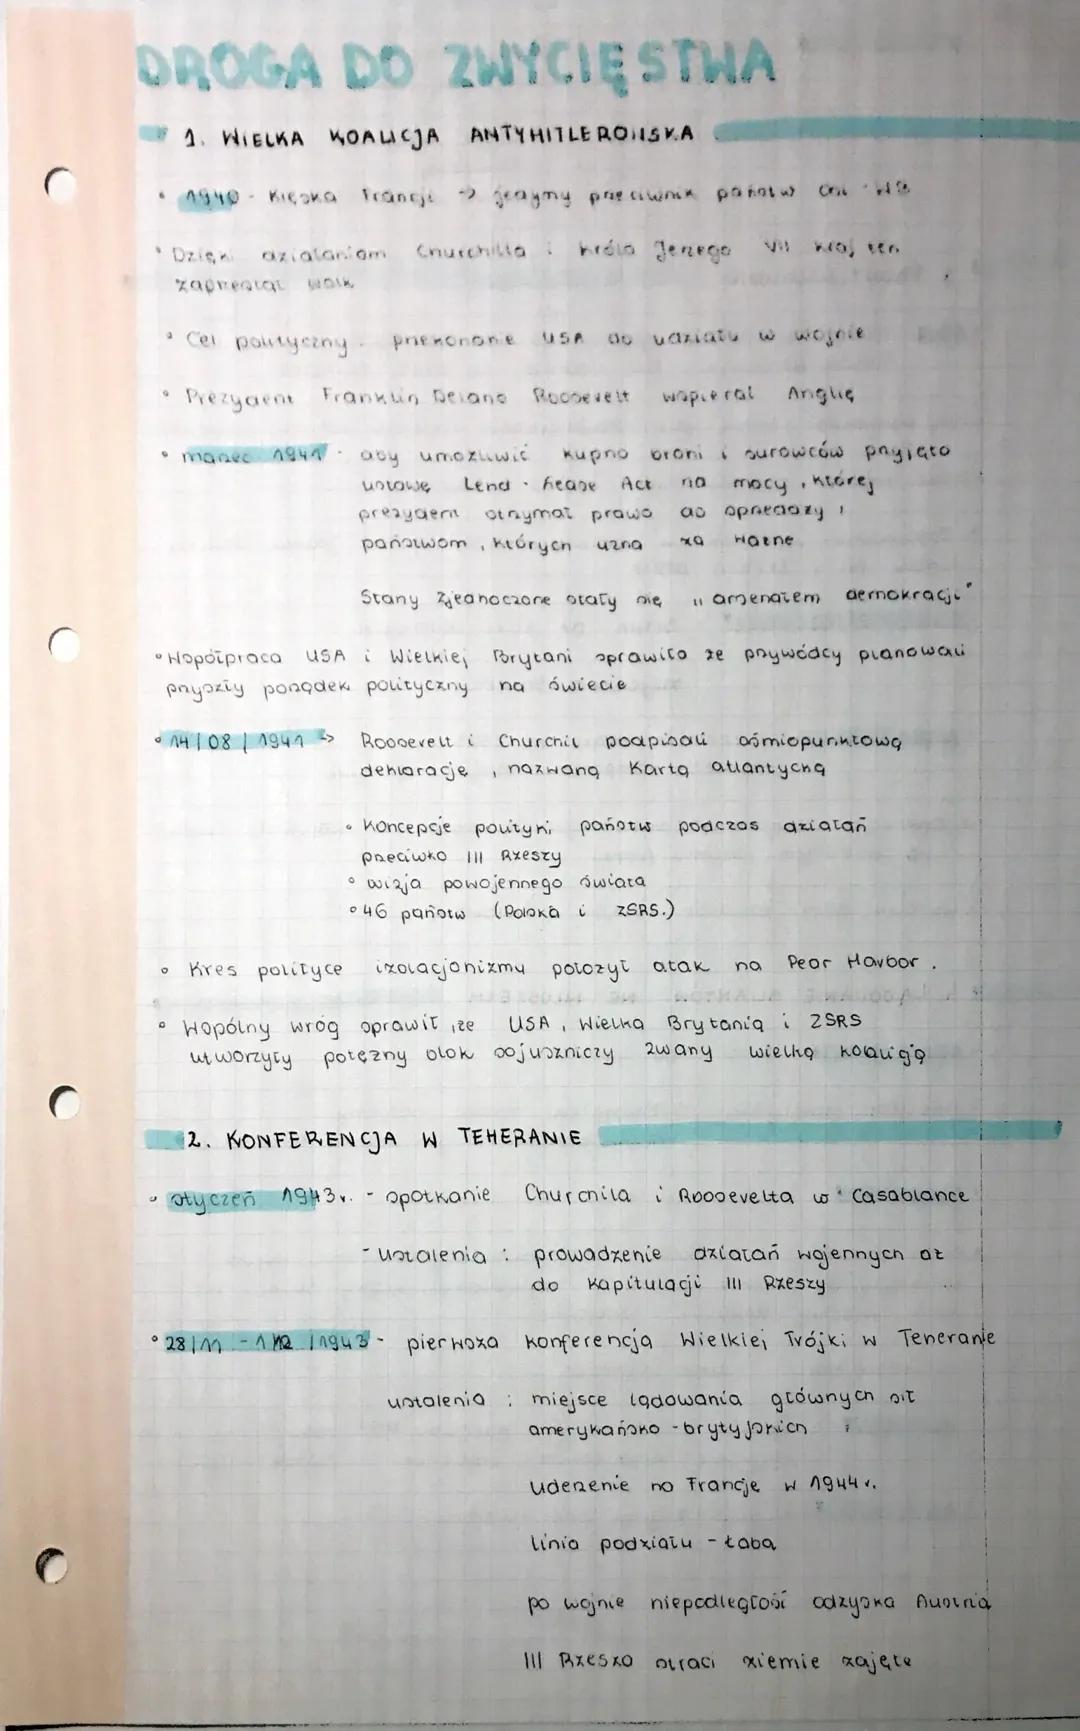 DROGA DO ZWYCIĘSTWA
1. WIELKA KOALICJA ANTYHITLEROWSKA
• 1940 - Klęska Francji → jedyny przeciwnik państw osi - WB
• Dzięki działaniom Churchilla i króla Jerzego VII kraj ten
zaprzestał walk
• Cel polityczny - przekonanie USA do udziału w wojnie
• Prezydent Franklin Delano Roosevelt wspierał Anglię
• marzec 1941 - aby umożliwić kupno broni i surowców przyjęto
ustawę Lend - Lease Act na mocy, której
prezydent otrzymał prawo do sprzedaży
państwom, których uzna za ważne
Stany Zjednoczone stały się „arsenałem demokracji"
• Współpraca USA i Wielkiej Brytani sprawiła że przywódcy planowali
przyszły porządek polityczny na świecie
• 14/08/1941 → Roosevelt i Churchil podpisali ośmiopunktową
deklarację, nazwaną Kartą atlantycką
• Koncepcje polityki państw podczas działań
przeciwko III Rzeszy
• wizja powojennego świata
• 46 państw (Polska i ZSRS.)
• Kres polityce izolacjonizmu położył atak na Pearl Harbor.
• Wspólny wróg sprawił, że USA, Wielka Brytania i ZSRS
utworzyły potężny blok sojuszniczy zwany wielką koalicją
2. KONFERENCJA W TEHERANIE
• styczeń 1943r. - spotkanie Churchila i Roosevelta w Casablance
- ustalenia : prowadzenie działań wojennych aż
do kapitulacji III Rzeszy
• 28/11 - 1/12/1943 - pierwsza konferencja Wielkiej Trójki w Teheranie
ustalenia : miejsce lądowania głównych sił
amerykańsko - brytyjskich
uderzenie na Francję w 1944r.
linia podziału - Łaba
po wojnie niepodległość odzyska Austria
III Rzesza straci ziemie zajęte